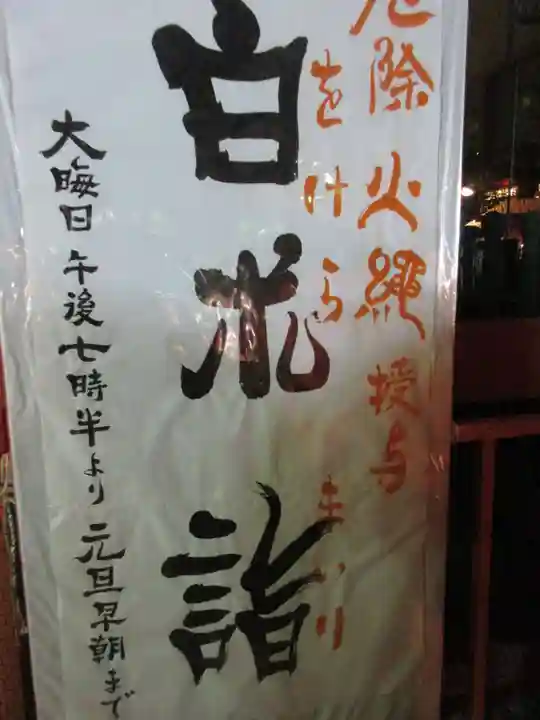 厄除 火縄 授与
をけら まいり
白朮詣
大晦日 午後七時半より 元旦早朝まで